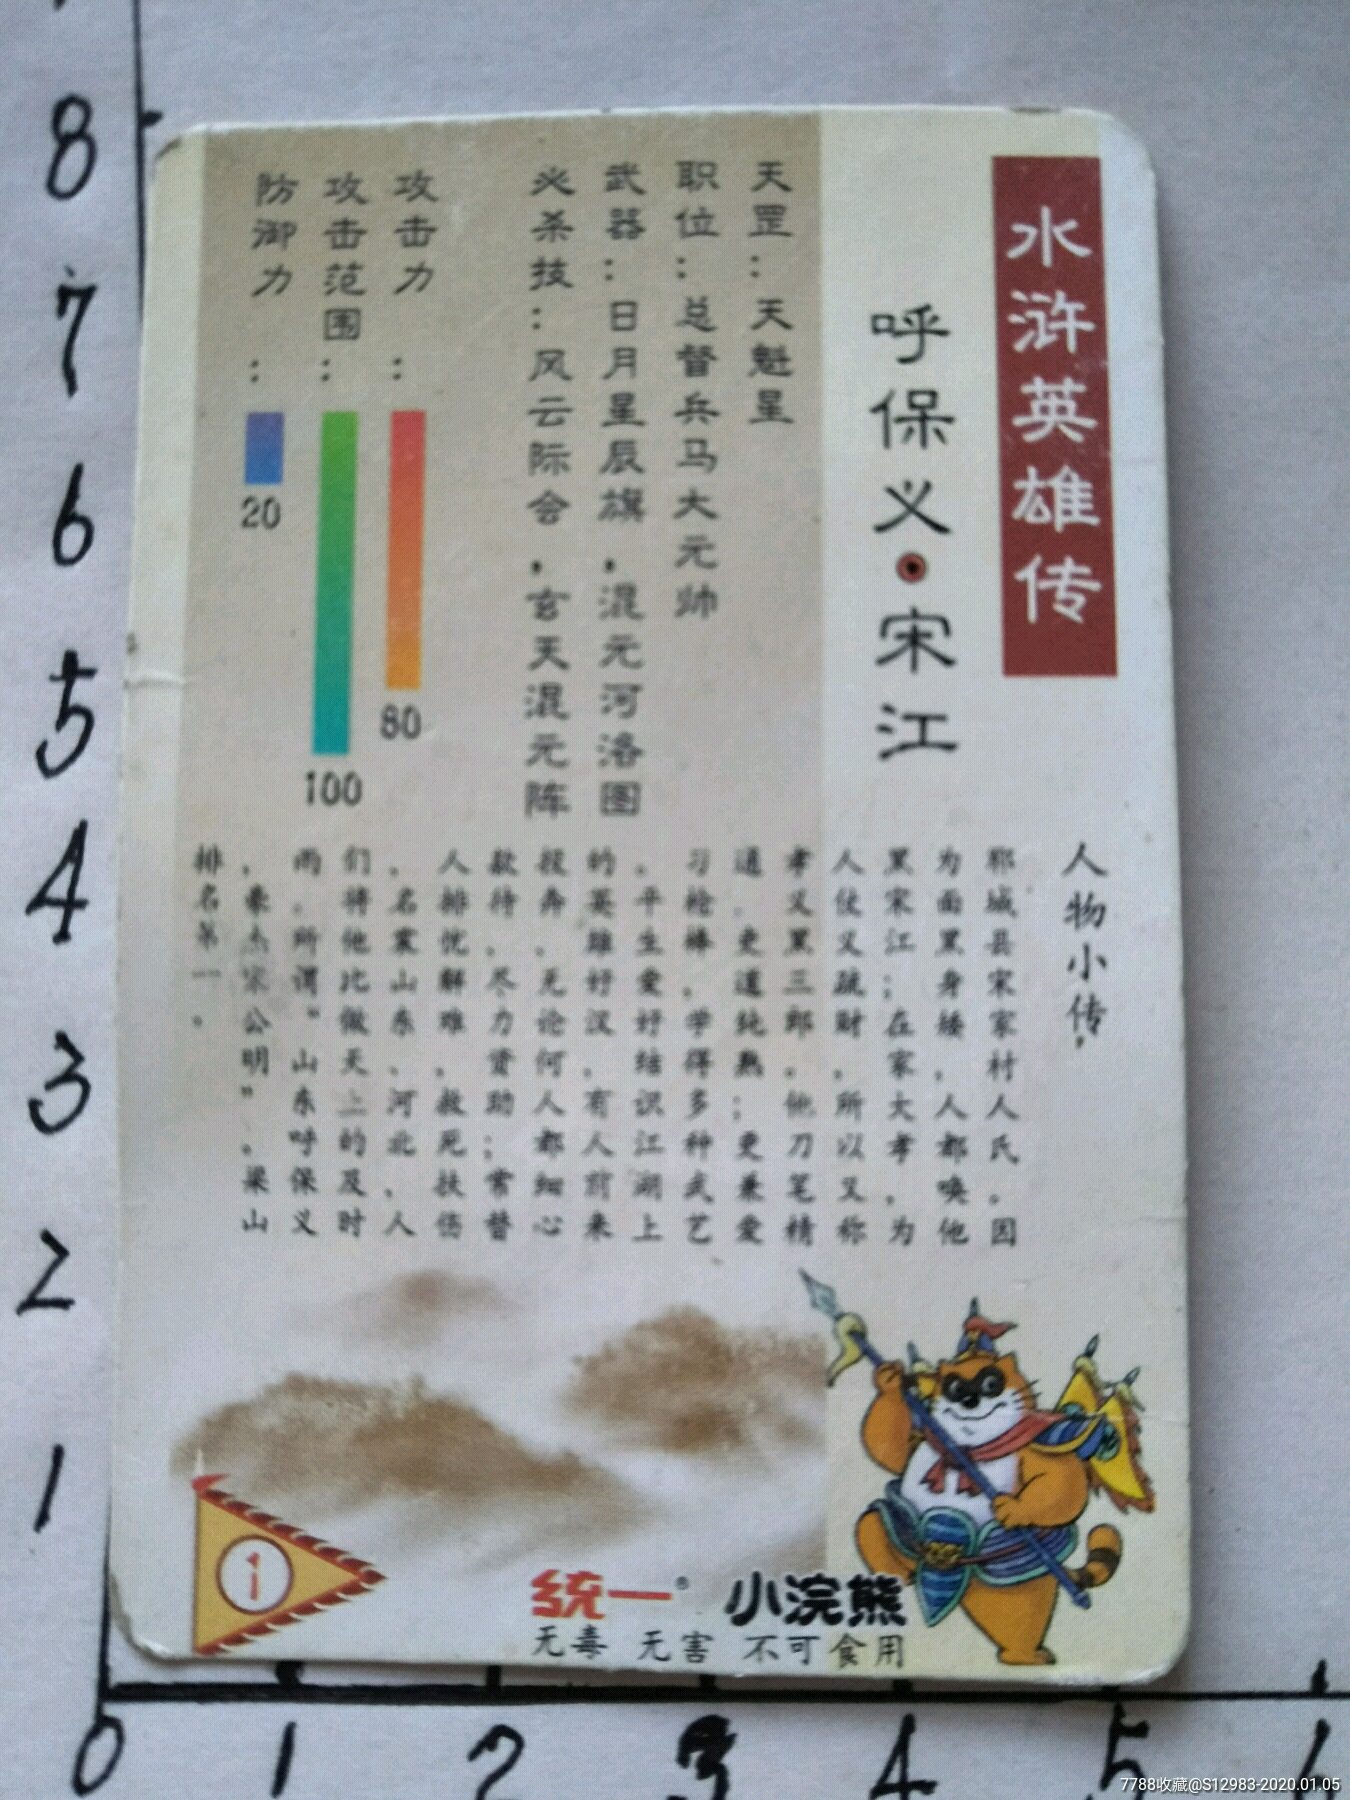 水浒英雄传
呼保义·宋江
天罡：天魁星
职位：总督兵马大元帅
武器：日月星辰旗，混元河洛图
必杀技：风云际会，玄天混元阵
攻击力：80
攻击范围：100
防御力：20
人物小传，
郓城县宋家村人氏。因
为面黑身矮，人都唤他
黑宋江；在家大孝，为
人仗义疏财，所以又称
孝义黑三郎。他刀笔精
通，吏道纯熟；更兼爱
习枪棒，学得多种武艺
。平生爱好结识江湖上
的英雄好汉，有人前来
投奔，无论何人都细心
款待，尽力资助；常替
人排忧解难，救死扶伤
，名震山东、河北，人
们将他比做天上的及时
雨。所谓"山东呼保义
，豪杰宋公明"。梁山
排名第一。
1
统一® 小浣熊
无毒 无害 不可食用
8
7
6
5
4
3
2
1
0 1 2 3 4 5 6
7788收藏@S12983-2020.01.05